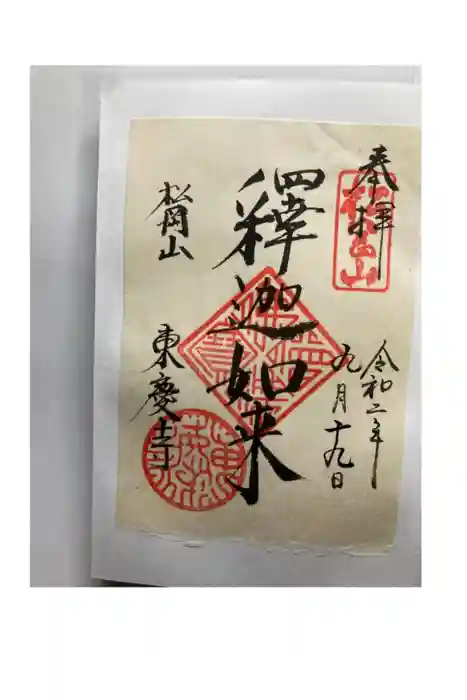 奉拝
松岡山
令和二年
九月十九日
釋迦如来
松岡山
東慶寺